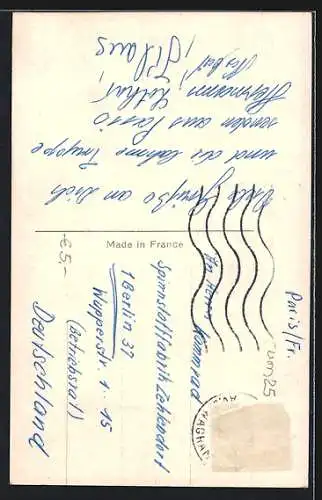 Viele Grüße an Dich
und die lahme Truppe
senden aus Paris
Herrmann, Lothar,
Klaus
Made in France
Paris/Fr.
An Herrn
Spinnstoffabrik Zehlendorf
1 Berlin 37
Wupperstr. 1-15
(Betriebsrat)
Deutschland
€ 5,-